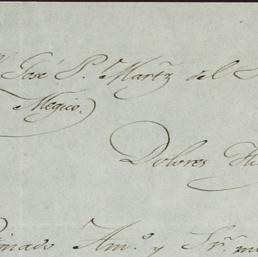 José P. Martz del
Megico.
Dolores
Am.o y Sr.